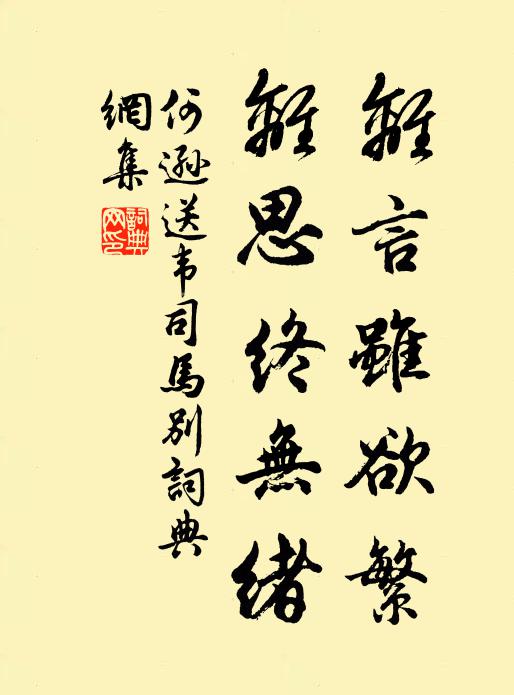 離言雖欲繁
離思終無緒
何遜送韦司馬別詞典
網集
詞典
网印